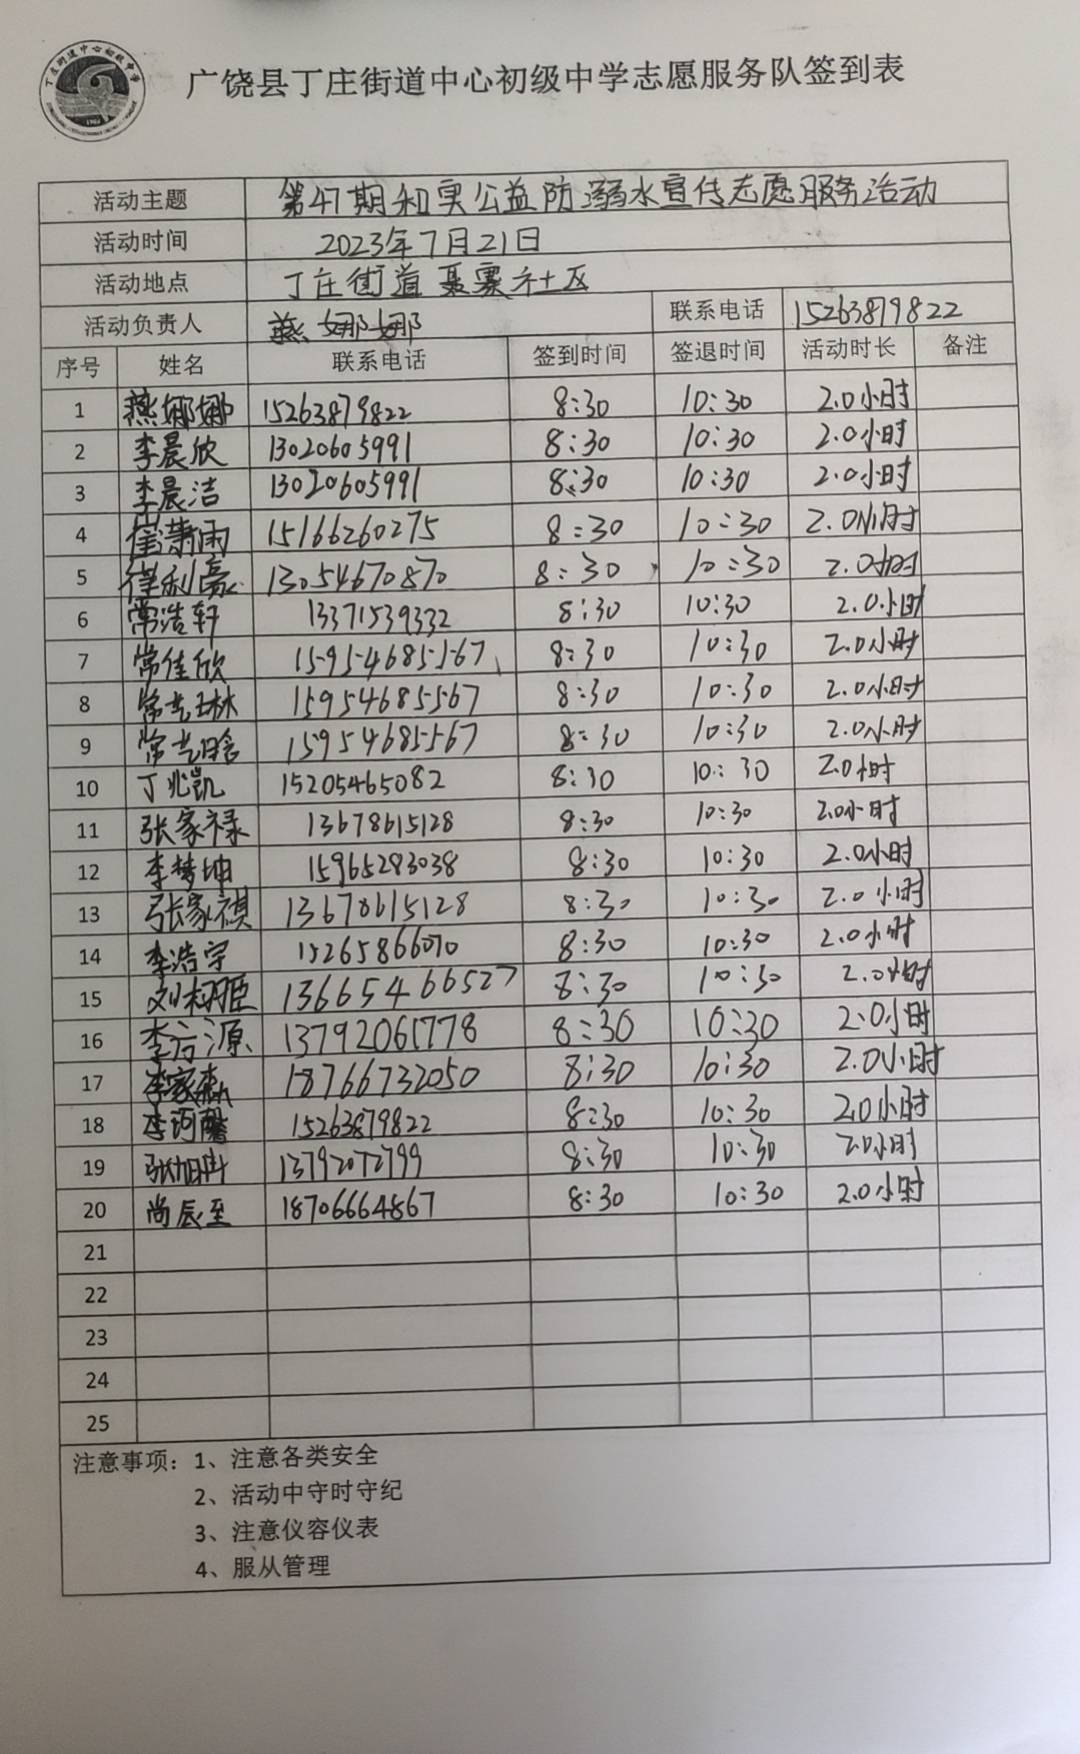 丁庄街道中心初级中学
广饶县丁庄街道中心初级中学志愿服务队签到表
活动主题 第47期和奥公益防溺水宣传志愿服务活动
活动时间 2023年7月21日
活动地点 丁庄街道聂寨社区
活动负责人 燕娜娜 联系电话 15263879822
序号 姓名 联系电话 签到时间 签退时间 活动时长 备注
1 燕娜娜 15263879822 8:30 10:30 2.0小时
2 李晨欣 13020605991 8:30 10:30 2.0小时
3 李晨洁 13020605991 8:30 10:30 2.0小时
4 崔潇雨 15166260275 8:30 10:30 2.0小时
5 利豪 13054670870 8:30 10:30 2.0小时
6 常浩轩 13371539332 8:30 10:30 2.0小时
7 常佳欣 15954685567 8:30 10:30 2.0小时
8 常艺琳 15954685567 8:30 10:30 2.0小时
9 常艺晗 15954685567 8:30 10:30 2.0小时
10 丁兆凯 15205465082 8:30 10:30 2.0小时
11 张家禄 13678615128 8:30 10:30 2.0小时
12 李梦坤 15965283038 8:30 10:30 2.0小时
13 张家祺 13678615128 8:30 10:30 2.0小时
14 李浩宇 15265866070 8:30 10:30 2.0小时
15 刘栩臣 13665466527 8:30 10:30 2.0小时
16 李方源 13792061778 8:30 10:30 2.0小时
17 李家 18766732050 8:30 10:30 2.0小时
18 李珂馨 15263879822 8:30 10:30 2.0小时
19 张旭冉 13792072799 8:30 10:30 2.0小时
20 尚辰至 18706664867 8:30 10:30 2.0小时
21
22
23
24
25
注意事项：1、注意各类安全
2、活动中守时守纪
3、注意仪容仪表
4、服从管理